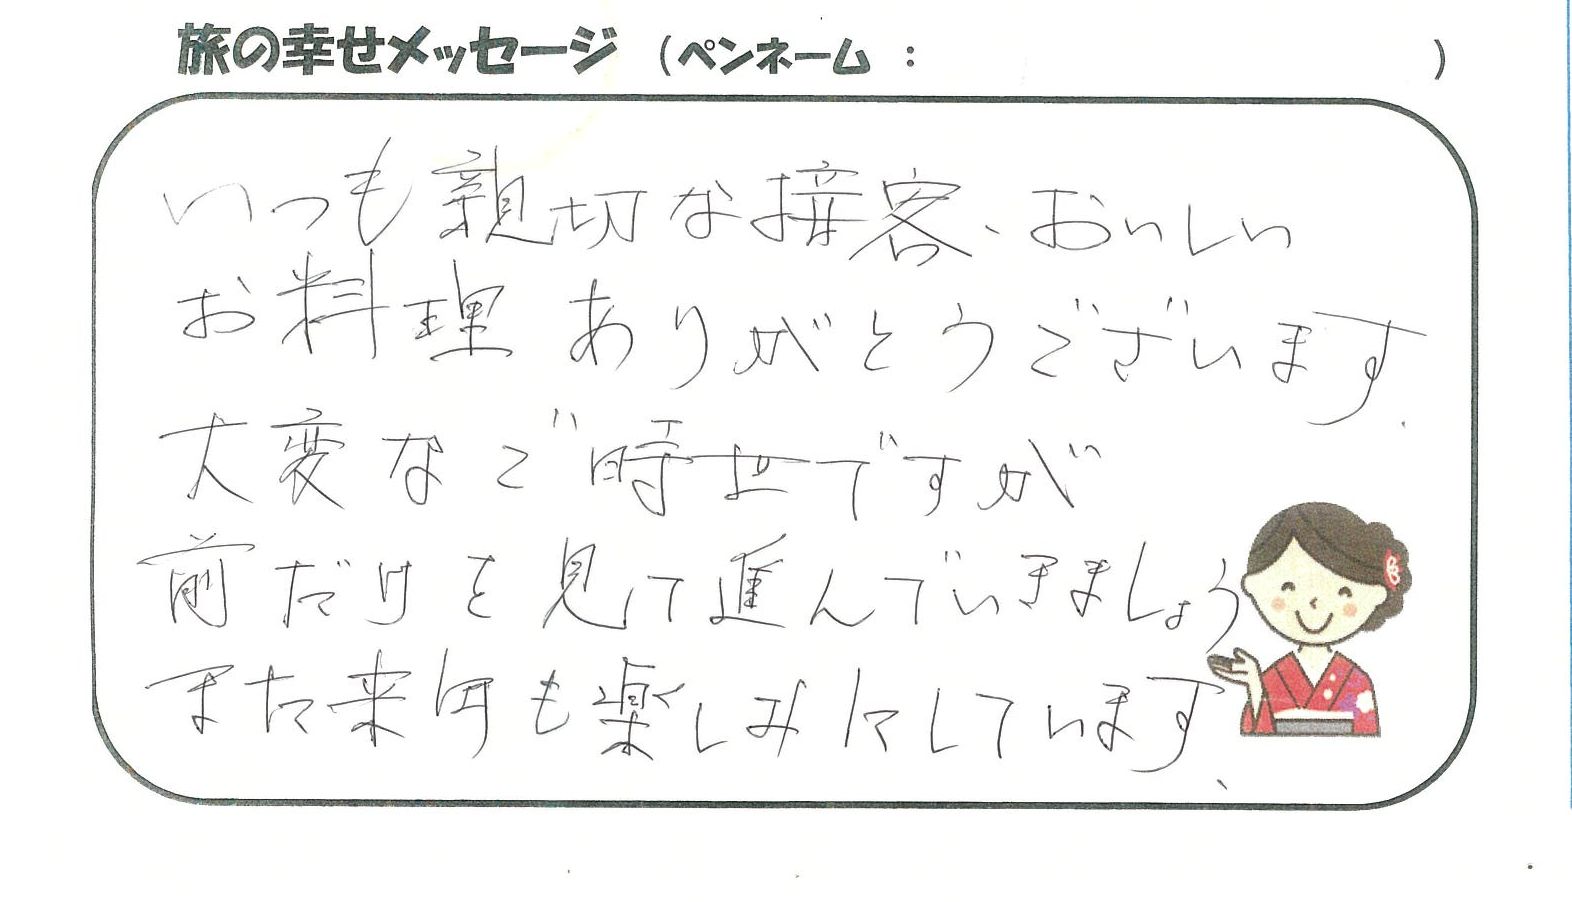 旅の幸せメッセージ (ペンネーム : )
いつも親切な接客、おいしい
お料理ありがとうございます.
大変なご時世ですが
前だけを見て進んでいきましょう
また来年も楽しみにしています、